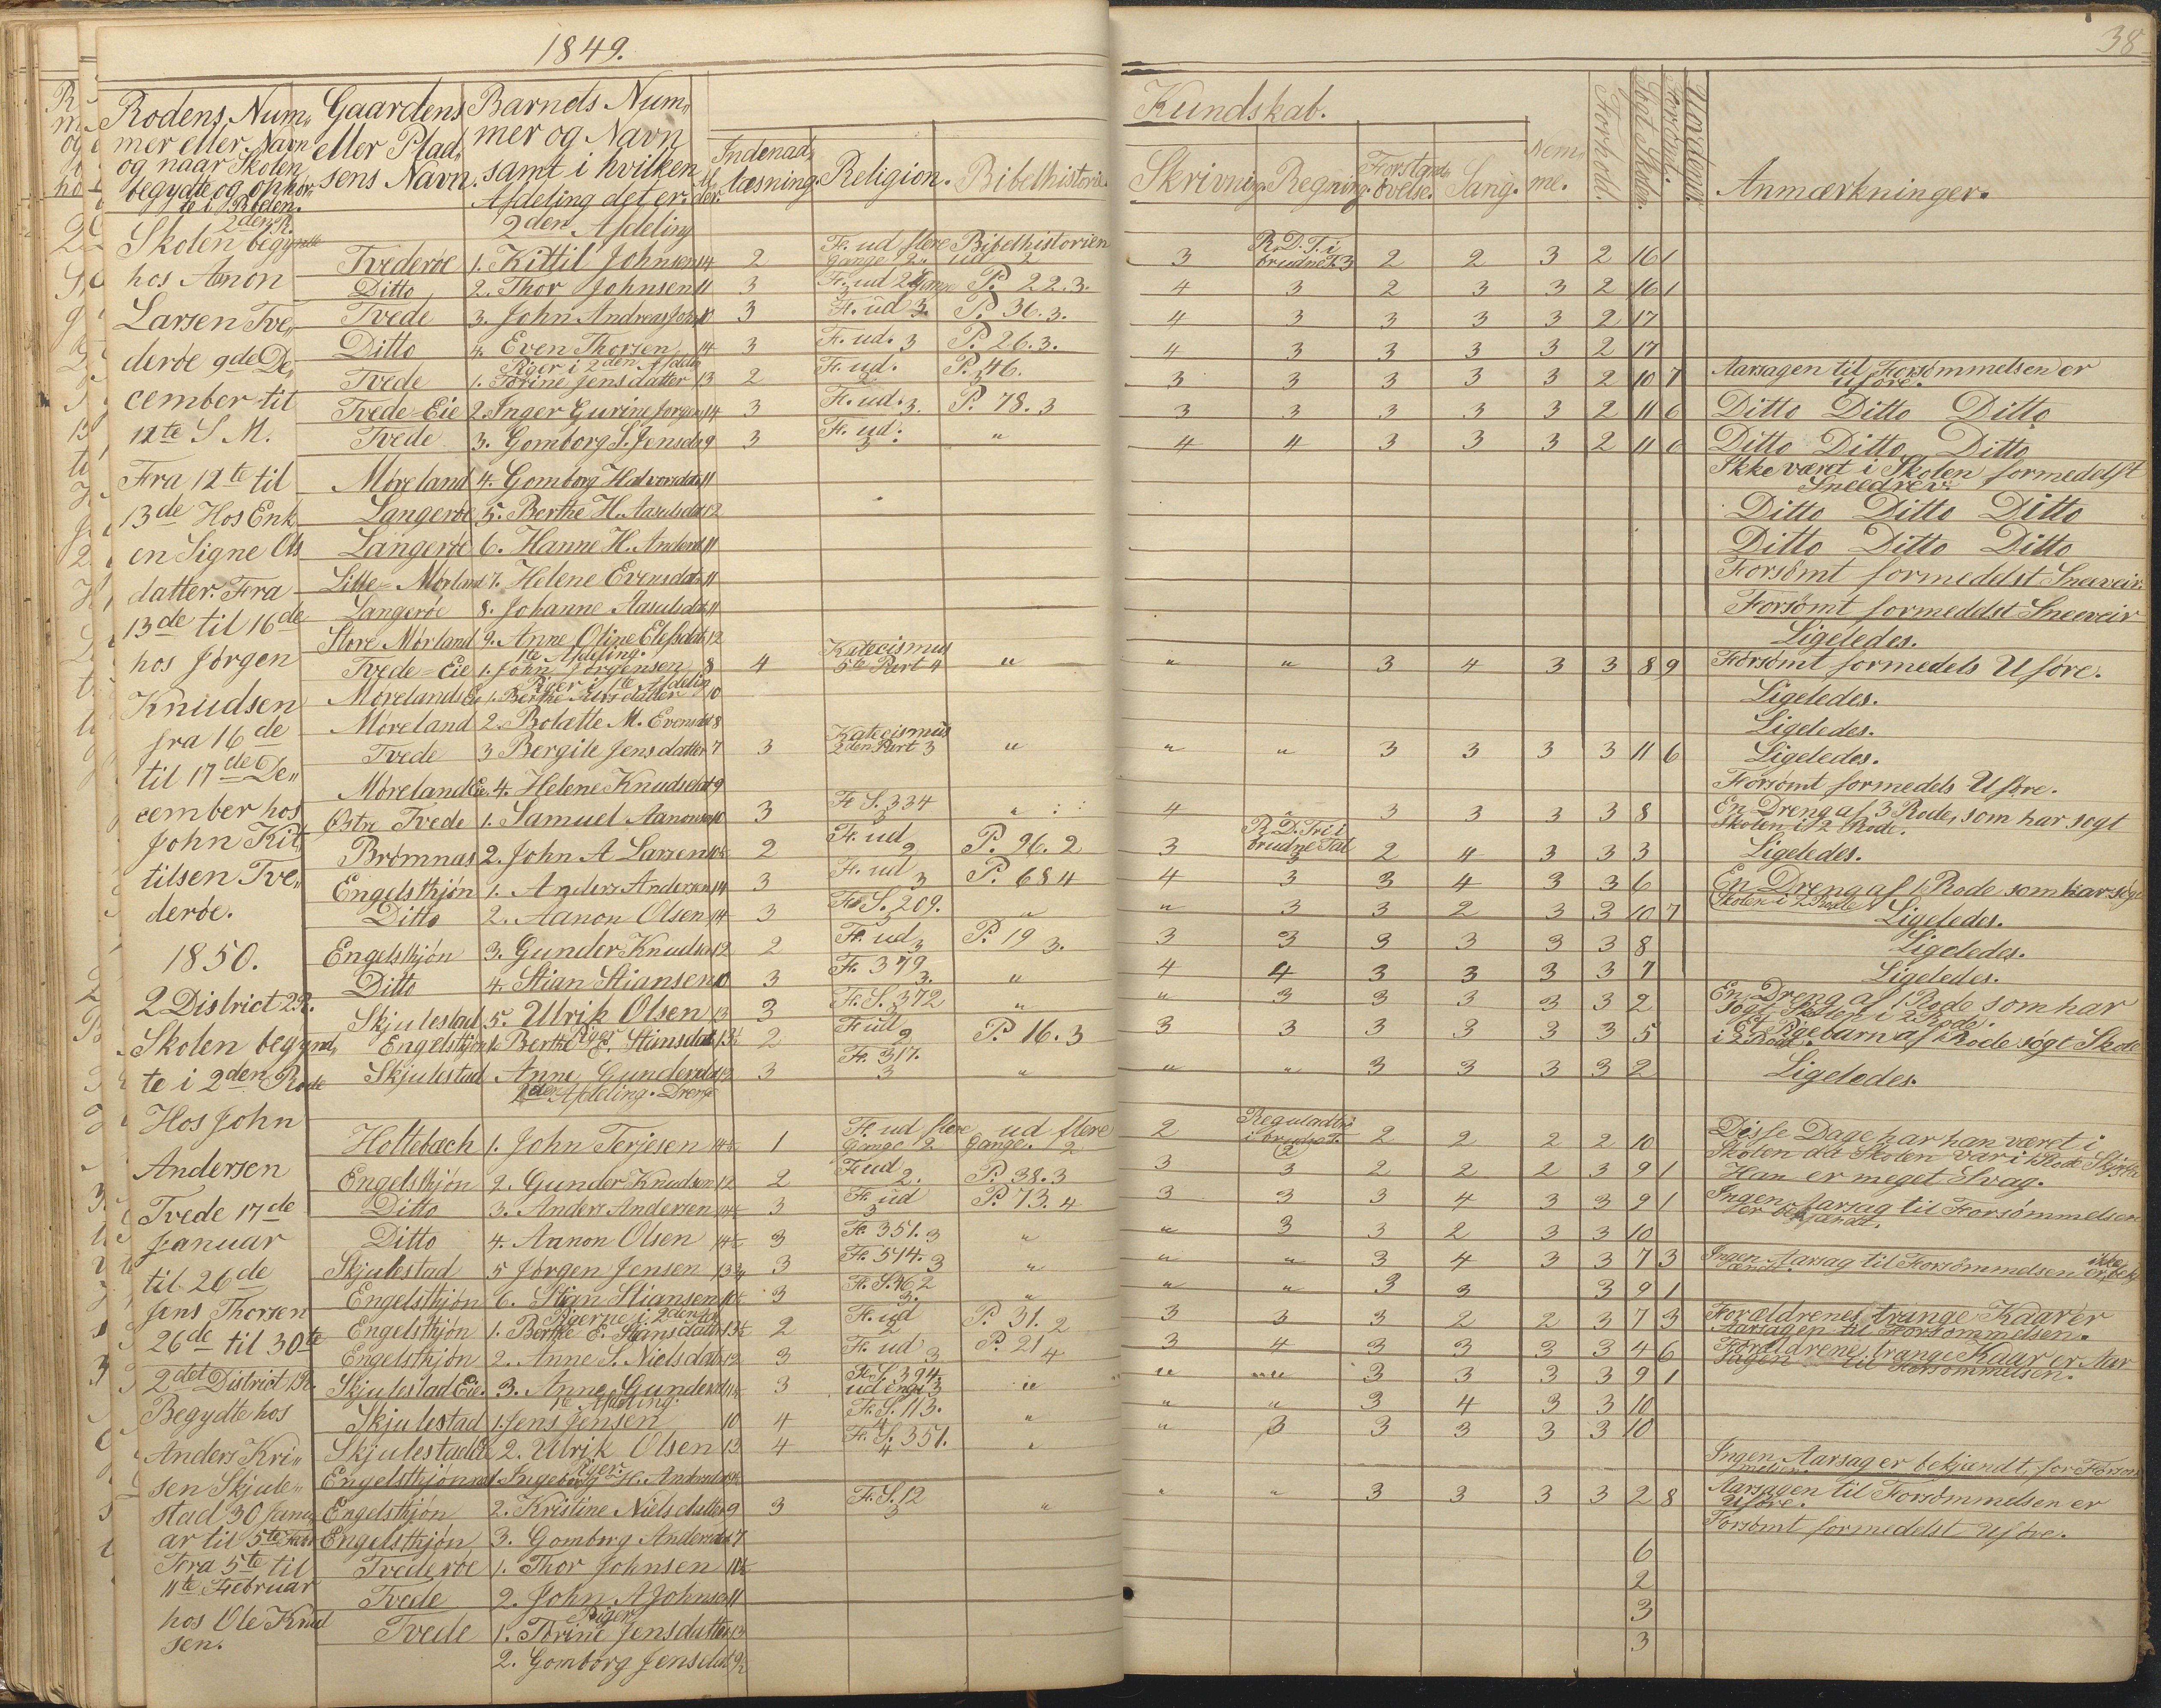 1849.
38
Rodens Num„ Gaardens Barnets Num„
mer eller Navn eller Plad„ mer og Navn
og naar Skolen sens Navn. samt i hvilken
begyndte og ophør„ Afdeling det er.
te i Roden.
Indenad„
læsning. Religion. Bibelhistorie.
Kundskab.
Skrivning. Regning. Forstands„
øvelse. Sang. Nem„
me.
Forhold. Søgt Skolen. Forsømt. Anmærkninger.
2den R.
Skolen begyndte
hos Anon
Larsen Tve„
derøe 9de De„
cember til
12te S M.
Fra 12te til
13de Hos Enk
en Signe Ols
datter. Fra
13de til 16de
hos Jørgen
Knudsen
fra 16de
til 17de De„
cember hos
John Kit„
tilsen Tve„
derøe.
1850.
2 District 2 R.
Skolen begynd„
te i 2den Rode
Hos John
Andersen
Tvede 17de
Januar
til 26de
Jens Thorsen
26de til 30te
2det District 1 R.
Begydte hos
Anders Kri„
sen Skjule„
stad 30 Janu„
ar til 5te Febr
Fra 5te til
11te Februar
hos Ole Knud
sen.
2den Afdeling
Tvederøe 1. Kittil Johnsen 14 2 Fr. ud flere Gange 2 Bibelhistorien ud 2 3 R. D. T. i brudne T. 3 2 2 3 2 16 1
Ditto 2. Thor Johnsen 11 3 Fr. ud 2 Gange P. 22. 3. 4 3 2 3 3 2 16 1
Tvede 3. John Andreas Johns 10 3 Fr. ud 3. P. 36. 3. 4 3 3 3 3 2 17
Ditto 4. Even Thorsen 14 3 Fr. ud. 3 P. 26. 3. 4 3 3 3 3 2 17
Piger i 2den Afdeln
Tvede 1. Torine Jensdatter 13 2 Fr. ud. 2 P. 46. 3 3 3 3 3 3 2 10 7 Aarsagen til Forsømmelsen er Uføre.
Tvede=Eie 2. Inger Gurine Jørgens 14 3 Fr. ud. 3. P. 78. 3 3 3 3 3 3 2 11 6 Ditto Ditto Ditto
Tvede 3. Gomborg S. Jensdt 9 3 Fr. ud. 3 „ 4 4 3 3 3 2 11 6 Ditto Ditto Ditto
Møreland 4. Gomborg Halvorsdatt 11 Ikke været i Skolen formedelst Sneedrev.
Langerøe 5. Berthe H. Aasulsdat 12 Ditto Ditto Ditto
Langerøe 6. Hanne H. Andersd 11 Ditto Ditto Ditto
Lille=Mørland 7. Helene Evensdatt 11 Forsømt formedelst Sneeveir.
Langerøe 8. Johanne Aasulsdat 11 Forsømt formedelst Sneeveir
Store Mørland 9. Anne Oline Elefsdat 12 Ligeledes.
1te Afdeling.
Tvede=Eie 1. John Jørgensen 8 4 Katecismus 5te Part 4 „ „ „ 3 4 3 3 8 9 Forsømt formedels Uføre.
Piger i 1te Afdeling
Mørelands Eie 1. Berthe Larsdatter 10 Ligeledes.
Møreland 2. Bolatte M. Evensdat 8 Ligeledes.
Tvede 3 Bergite Jensdatter 7 3 Katecismus 2den Part 3 „ „ „ 3 3 3 3 11 6 Ligeledes.
Møreland Eie. 4. Helene Knudsdat 9 Forsømt formedels Uføre.
Østre Tvede 1. Samuel Aanonsen 10 3 Fr. S. 334 3 „ 4 „ 3 3 3 3 8 En Dreng af 3 Rode, som har søgt Skolen i 2 Rode.
Brømnas 2. John A Larsen 10½ 2 Fr. ud 2 P. 96. 2 3 R. D. Tri i brudne Tal 3 2 4 3 3 3 Ligeledes.
Engelsthjøn 1. Anders Andersen 14 3 Fr. ud 3 P. 68 4 4 3 3 4 3 3 6 En Dreng af 1 Rode som har søgt Skolen i 2 Rode
Ditto 2. Aanon Olsen 14 3 Fr. S. 209. 3 „ „ 3 3 2 3 3 10 7 Ligeledes.
Engelsthjøn 3. Gunder Knudsen 12 2 Fr. ud 3 P. 19 3. 3 3 3 3 3 3 8 Ligeledes.
Ditto 4. Stian Stiansen 10 3 Fr. 379 3. „ 4 4 3 3 3 3 7 Ligeledes.
Skjulestad 5. Ulrik Olsen 13 3 Fr. S. 372 3 „ „ 3 3 3 3 3 2 En Dreng af 1 Rode som har Søgt Skolen i 2 Rode.
Piger
Engelsthjøn 1. Berthe E. Stiansdat 13½ 2 Fr ud 2 P. 16. 3 3 3 3 3 3 3 5 Et Pigebarn af 1 Rode søgt Skole i 2 Rode.
Skjulestad Anne Gundersdat 12 3 Fr. 317. 3 „ „ „ 3 3 3 3 2 Ligeledes.
2den Afdeling. Drenge
Holtebæch 1. John Terjesen 14½ 1 Fr. ud flere Gange 2 ud flere Gange. 2 2 Reguladetri i brudne T. 2 2 2 2 2 10 Disse Dage har han været i Skolen da Skolen var i 1 Rode
Engelsthjøn 2. Gunder Knudsen 12 2 Fr ud 2. P. 38. 3 3 3 2 2 2 3 9 1 Han er meget Svag.
Ditto 3. Anders Andersen 14½ 3 Fr. ud 3 P. 73. 4 3 3 3 4 3 3 9 1 Ingen Aarsag til Forsømmelsen er bekjændt.
Ditto 4. Aanon Olsen 14½ 3 Fr. 351. 3 „ „ 3 3 2 3 3 10
Skjulestad 5 Jørgen Jensen 13¾ 3 Fr. 514. 3 „ „ „ 3 4 3 3 7 3 Ingen Aarsag til Forsømmelsen er bekjændt.
Engelsthjøn 6. Stian Stiansen 10½ 3 Fr. S. 462 3. „ „ „ 3 3 3 9 1
Pigerne i 2den Af
Engelsthjøn 1. Berthe E. Stiansdatt 13½ 2 Fr. ud 2 P. 31. 2 3 3 3 2 2 3 7 3 Forældrenes trange Kaar er Aarsagen til Forsømmelsen.
Engelsthjøn 2. Anne S. Nielsdatt 12 3 Fr. ud 3 P. 21 4 3 4 3 3 3 3 4 6 Forældrene trange Kaar er Aar sagen til Forsømmelsen.
Skjulestad Eie. 3. Anne Gundersd 3 Fr. S. 394. 3 „ „ „ 3 3 3 3 9 1
1te Afdeling.
Skjulestad 1. Jens Jensen 10 4 Fr. S. 113. 4 „ „ „ 3 4 3 3 10
Skjulestad 2. Ulrik Olsen 13 4 Fr. S. 351. 4 „ „ 3 3 3 3 3 10
Piger.
Engelsthjøn 1. Ingeborg H. Andersdat Ingen Aarsag er bekjendt, for Forsøm melsen.
Engelsthjøn 2. Kristine Nielsdatter 9 3 Fr. S. 12 3 „ „ „ 3 3 3 3 2 8 Aarsagen til Forsømmelsen er Uføre.
Engelsthjøn 3. Gomborg Andersdat 7 Forsømt formedelst Uføre.
Tvederøe 1. Thor Johnsen 11½ 6
Tvede 2. John A Johnsen 11 2
Piger
Tvede 1. Torine Jensdatter 13 3
2. Gomborg Jensdat 9½ 3